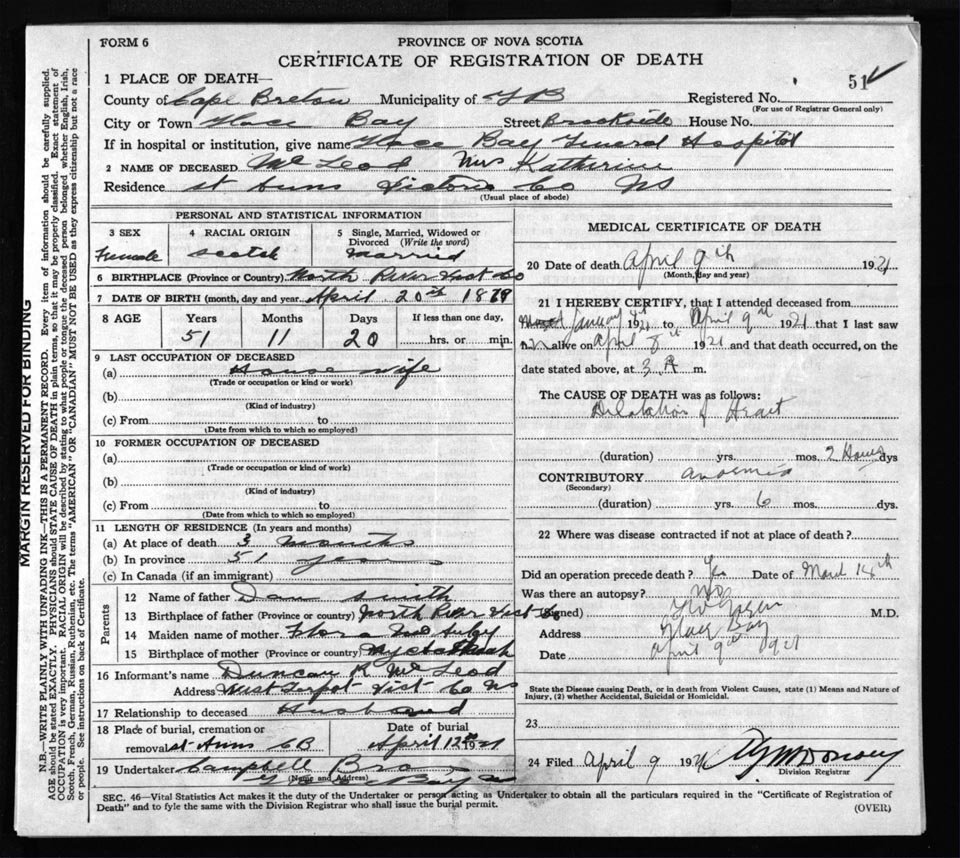 FORM 6
PROVINCE OF NOVA SCOTIA
CERTIFICATE OF REGISTRATION OF DEATH
51 ✓
1 PLACE OF DEATH—
County of Cape Breton Municipality of Registered No.
(For use of Registrar General only)
City or Town Glace Bay Street Brookside House No.
If in hospital or institution, give name Glace Bay General Hospital
2 NAME OF DECEASED Mc Leod Mrs Katherine
Residence St Anns Victoria Co NS
(Usual place of abode)
PERSONAL AND STATISTICAL INFORMATION
3 SEX Female
4 RACIAL ORIGIN Scotch
5 Single, Married, Widowed or Divorced (Write the word) Married
6 BIRTHPLACE (Province or Country) North River Vict Co
7 DATE OF BIRTH (month, day and year April 20th 1869
8 AGE Years Months Days If less than one day,
51 11 20 hrs. or min.
9 LAST OCCUPATION OF DECEASED
(a) House wife
(Trade or occupation or kind or work)
(b)
(Kind of industry)
(c) From to
(Date from which to which so employed)
10 FORMER OCCUPATION OF DECEASED
(a)
(Trade or occupation or kind of work)
(b)
(Kind of industry)
(c) From to
(Date from which to which so employed)
11 LENGTH OF RESIDENCE (In years and months)
(a) At place of death 3 months
(b) In province 51 years
(c) In Canada (if an immigrant)
Parents
12 Name of father Dan Smith
13 Birthplace of father (Province or country) North River Vict Co
14 Maiden name of mother Flora
15 Birthplace of mother (Province or country)
16 Informant's name Duncan R McLeod
Address West Vict Co NS
17 Relationship to deceased Husband
18 Place of burial, cremation or removal St Anns CB
Date of burial April 12th 1921
19 Undertaker Campbell Bro
(Name and Address)
MEDICAL CERTIFICATE OF DEATH
20 Date of death April 9th 1921
(Month, day and year)
21 I HEREBY CERTIFY, that I attended deceased from
January 1921 to April 9th 1921 that I last saw
alive on April 8th 1921 and that death occurred, on the
date stated above, at 3 A m.
The CAUSE OF DEATH was as follows:
Dilatation of Heart
(duration) yrs. mos. 2 Hours dys
CONTRIBUTORY anaemia
(Secondary)
(duration) yrs. 6 mos. dys.
22 Where was disease contracted if not at place of death?
Did an operation precede death? Yes Date of March 14th
Was there an autopsy? No
(Signed) M.D.
Address Glace Bay
Date April 9th 1921
State the Disease causing Death, or in death from Violent Causes, state (1) Means and Nature of Injury, (2) whether Accidental, Suicidal or Homicidal.
23
24 Filed April 9 1921
Division Registrar
SEC. 46—Vital Statistics Act makes it the duty of the Undertaker or person acting as Undertaker to obtain all the particulars required in the "Certificate of Registration of
Death" and to fyle the same with the Division Registrar who shall issue the burial permit.
(OVER)
MARGIN RESERVED FOR BINDING
N.B.—WRITE PLAINLY WITH UNFADING INK—THIS IS A PERMANENT RECORD. Every item of information should be carefully supplied.
AGE should be stated EXACTLY. PHYSICIANS should STATE CAUSE OF DEATH in plain terms, so that it may be properly classified. Exact statement of
OCCUPATION is very important. RACIAL ORIGIN will be described by stating to what people or tongue the deceased person belonged whether English, Irish,
Scotch, French, German, Russian, Ruthenian, etc. The terms "AMERICAN" OR "CANADIAN" MUST NOT BE USED as they express citizenship but not a race
or people. See instructions on back of Certificate.